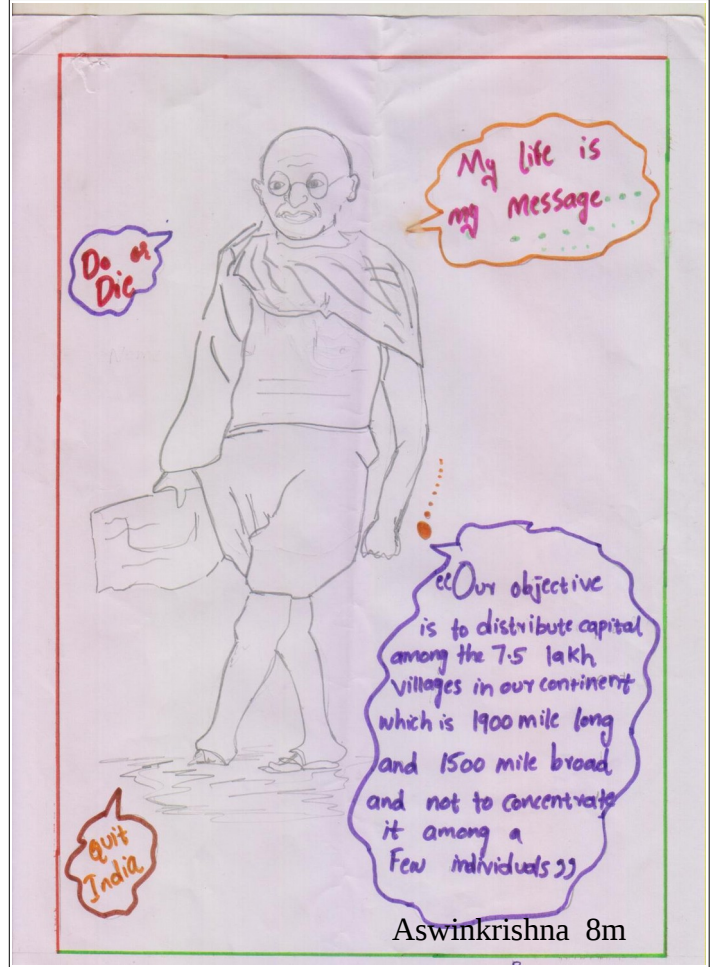 My life is
my Message
Do or
Die
“Our objective
is to distribute capital
among the 7.5 lakh
villages in our continent
which is 1900 mile long
and 1500 mile broad
and not to concentrate
it among a
Few individuals”
Quit
India
Aswinkrishna 8m